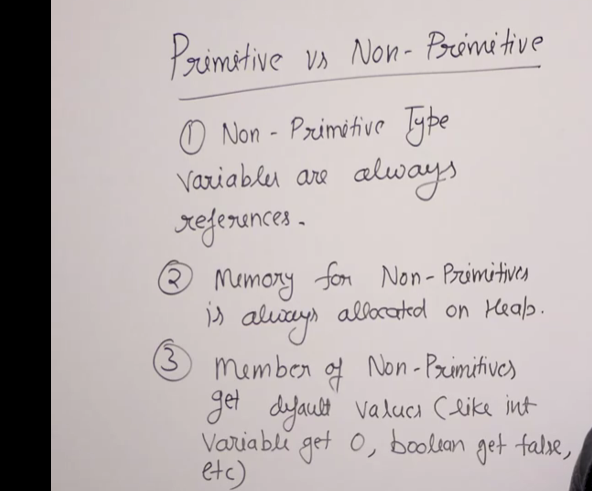 Primitive vs Non-Primitive
① Non-Primitive Type
Variables are always
references.
② Memory for Non-Primitives
is always allocated on Heap.
③ Member of Non-Primitives
get default values (like int
Variable get 0, boolean get false,
etc)